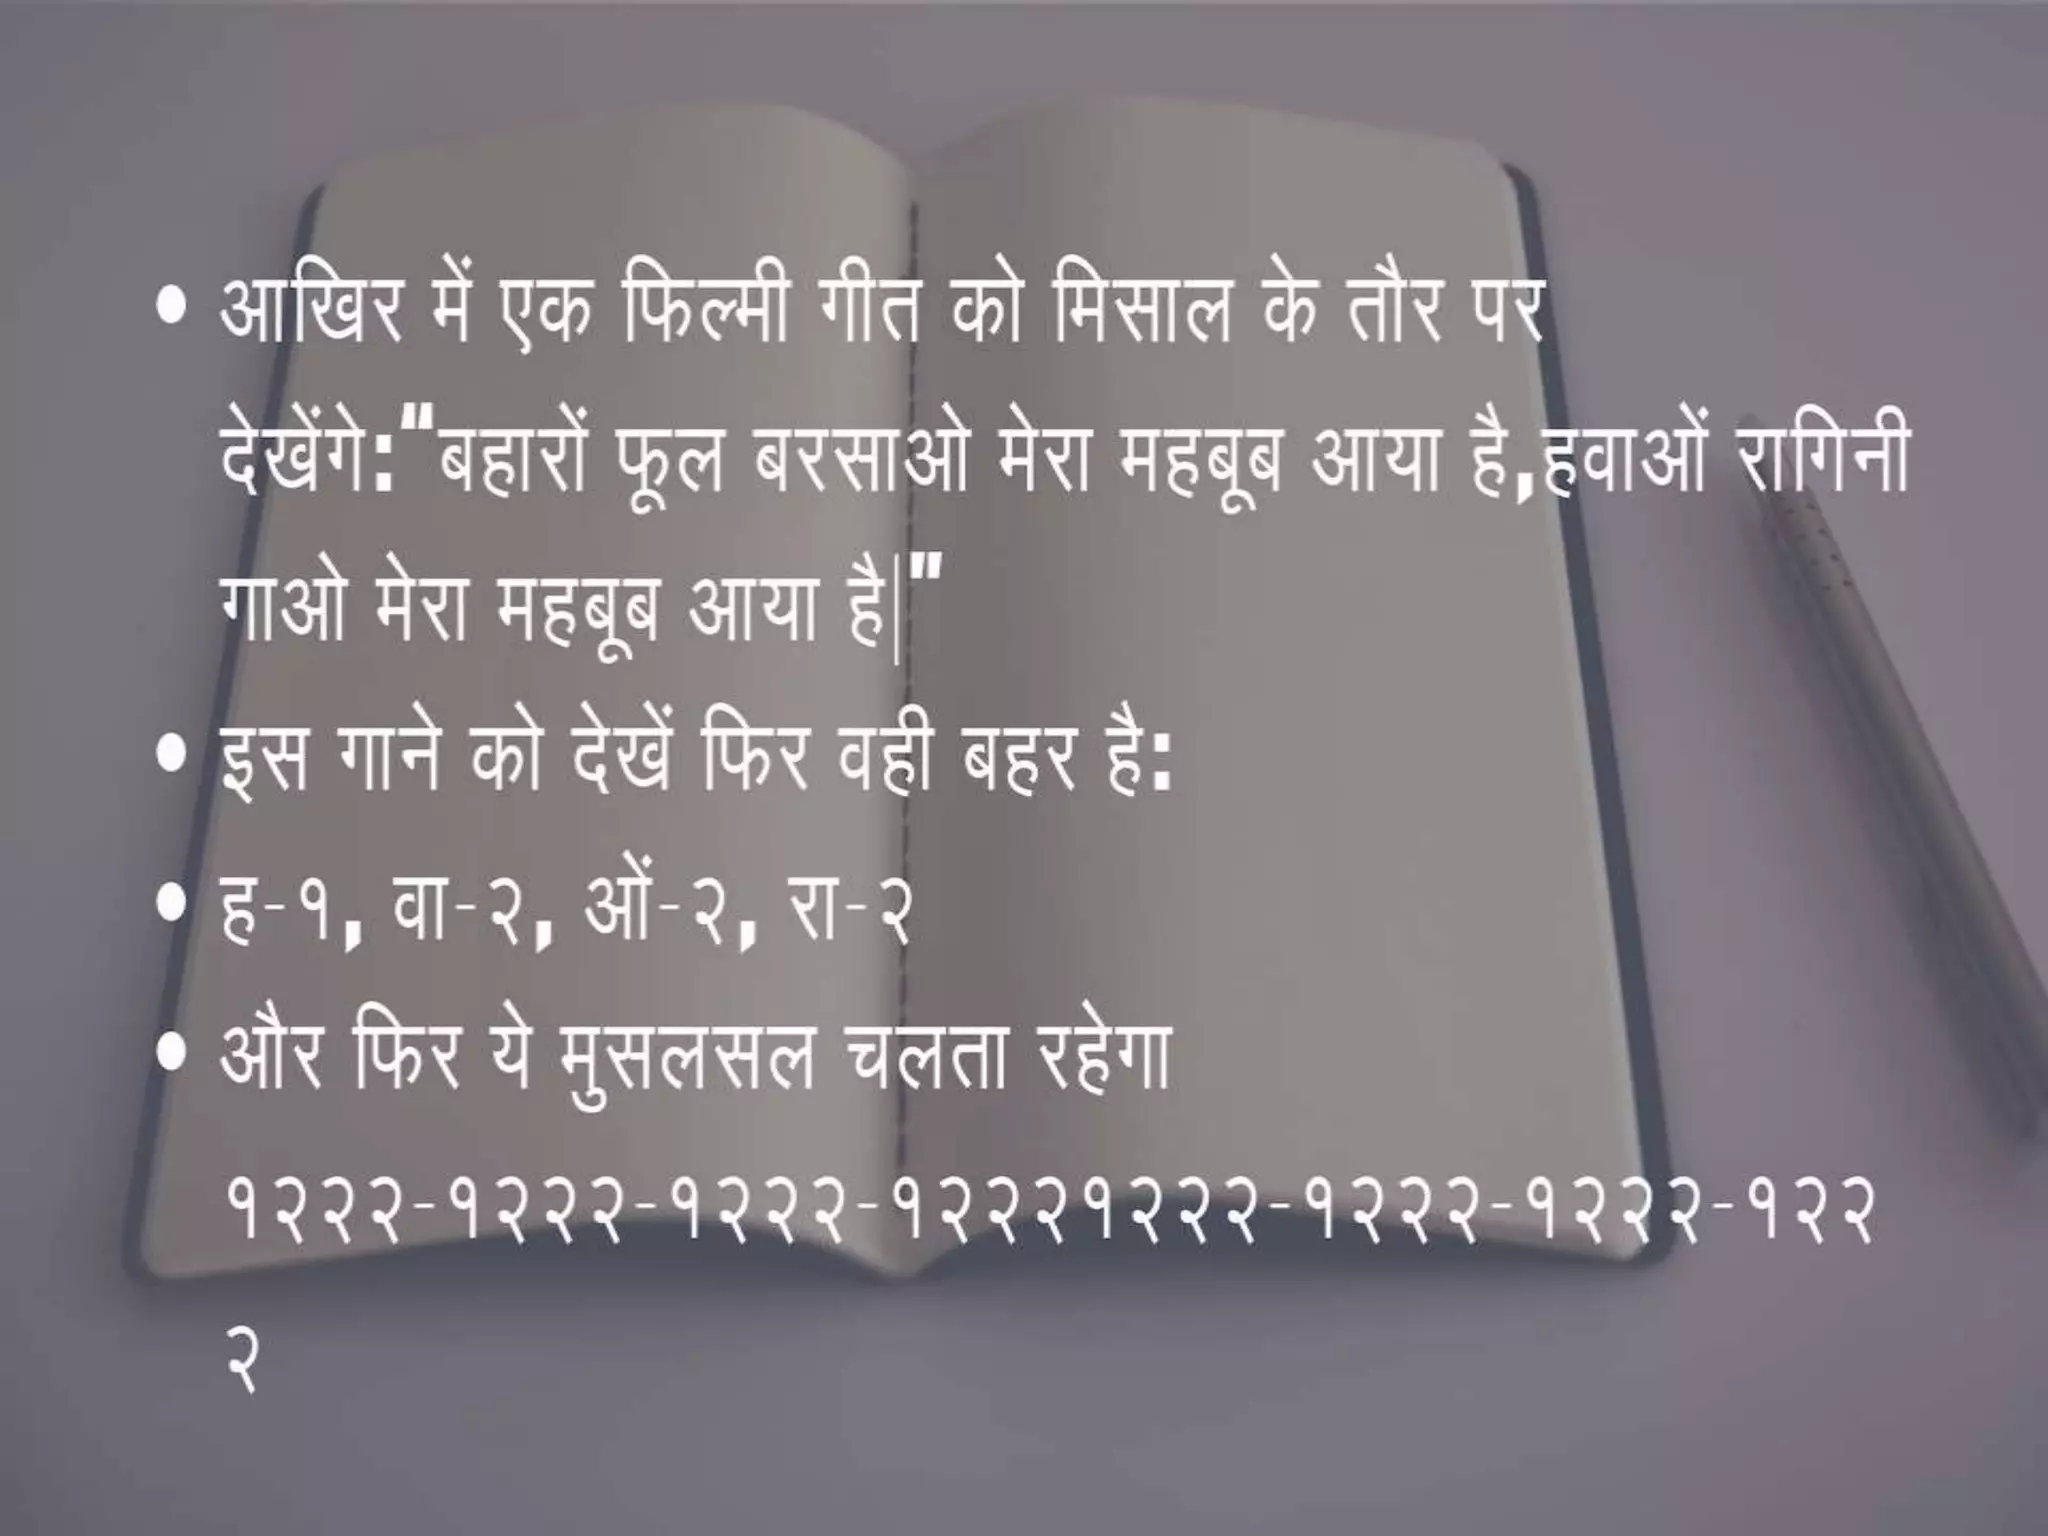 • आखिर में एक फिल्मी गीत को मिसाल के तौर पर
देखेंगे:"बहारों फूल बरसाओ मेरा महबूब आया है,हवाओं रागिनी
गाओ मेरा महबूब आया है|"
• इस गाने को देखें फिर वही बहर है:
• ह-१, वा-२, ओं-२, रा-२
• और फिर ये मुसलसल चलता रहेगा
१२२२-१२२२-१२२२-१२२२१२२२-१२२२-१२२२-१२२
२